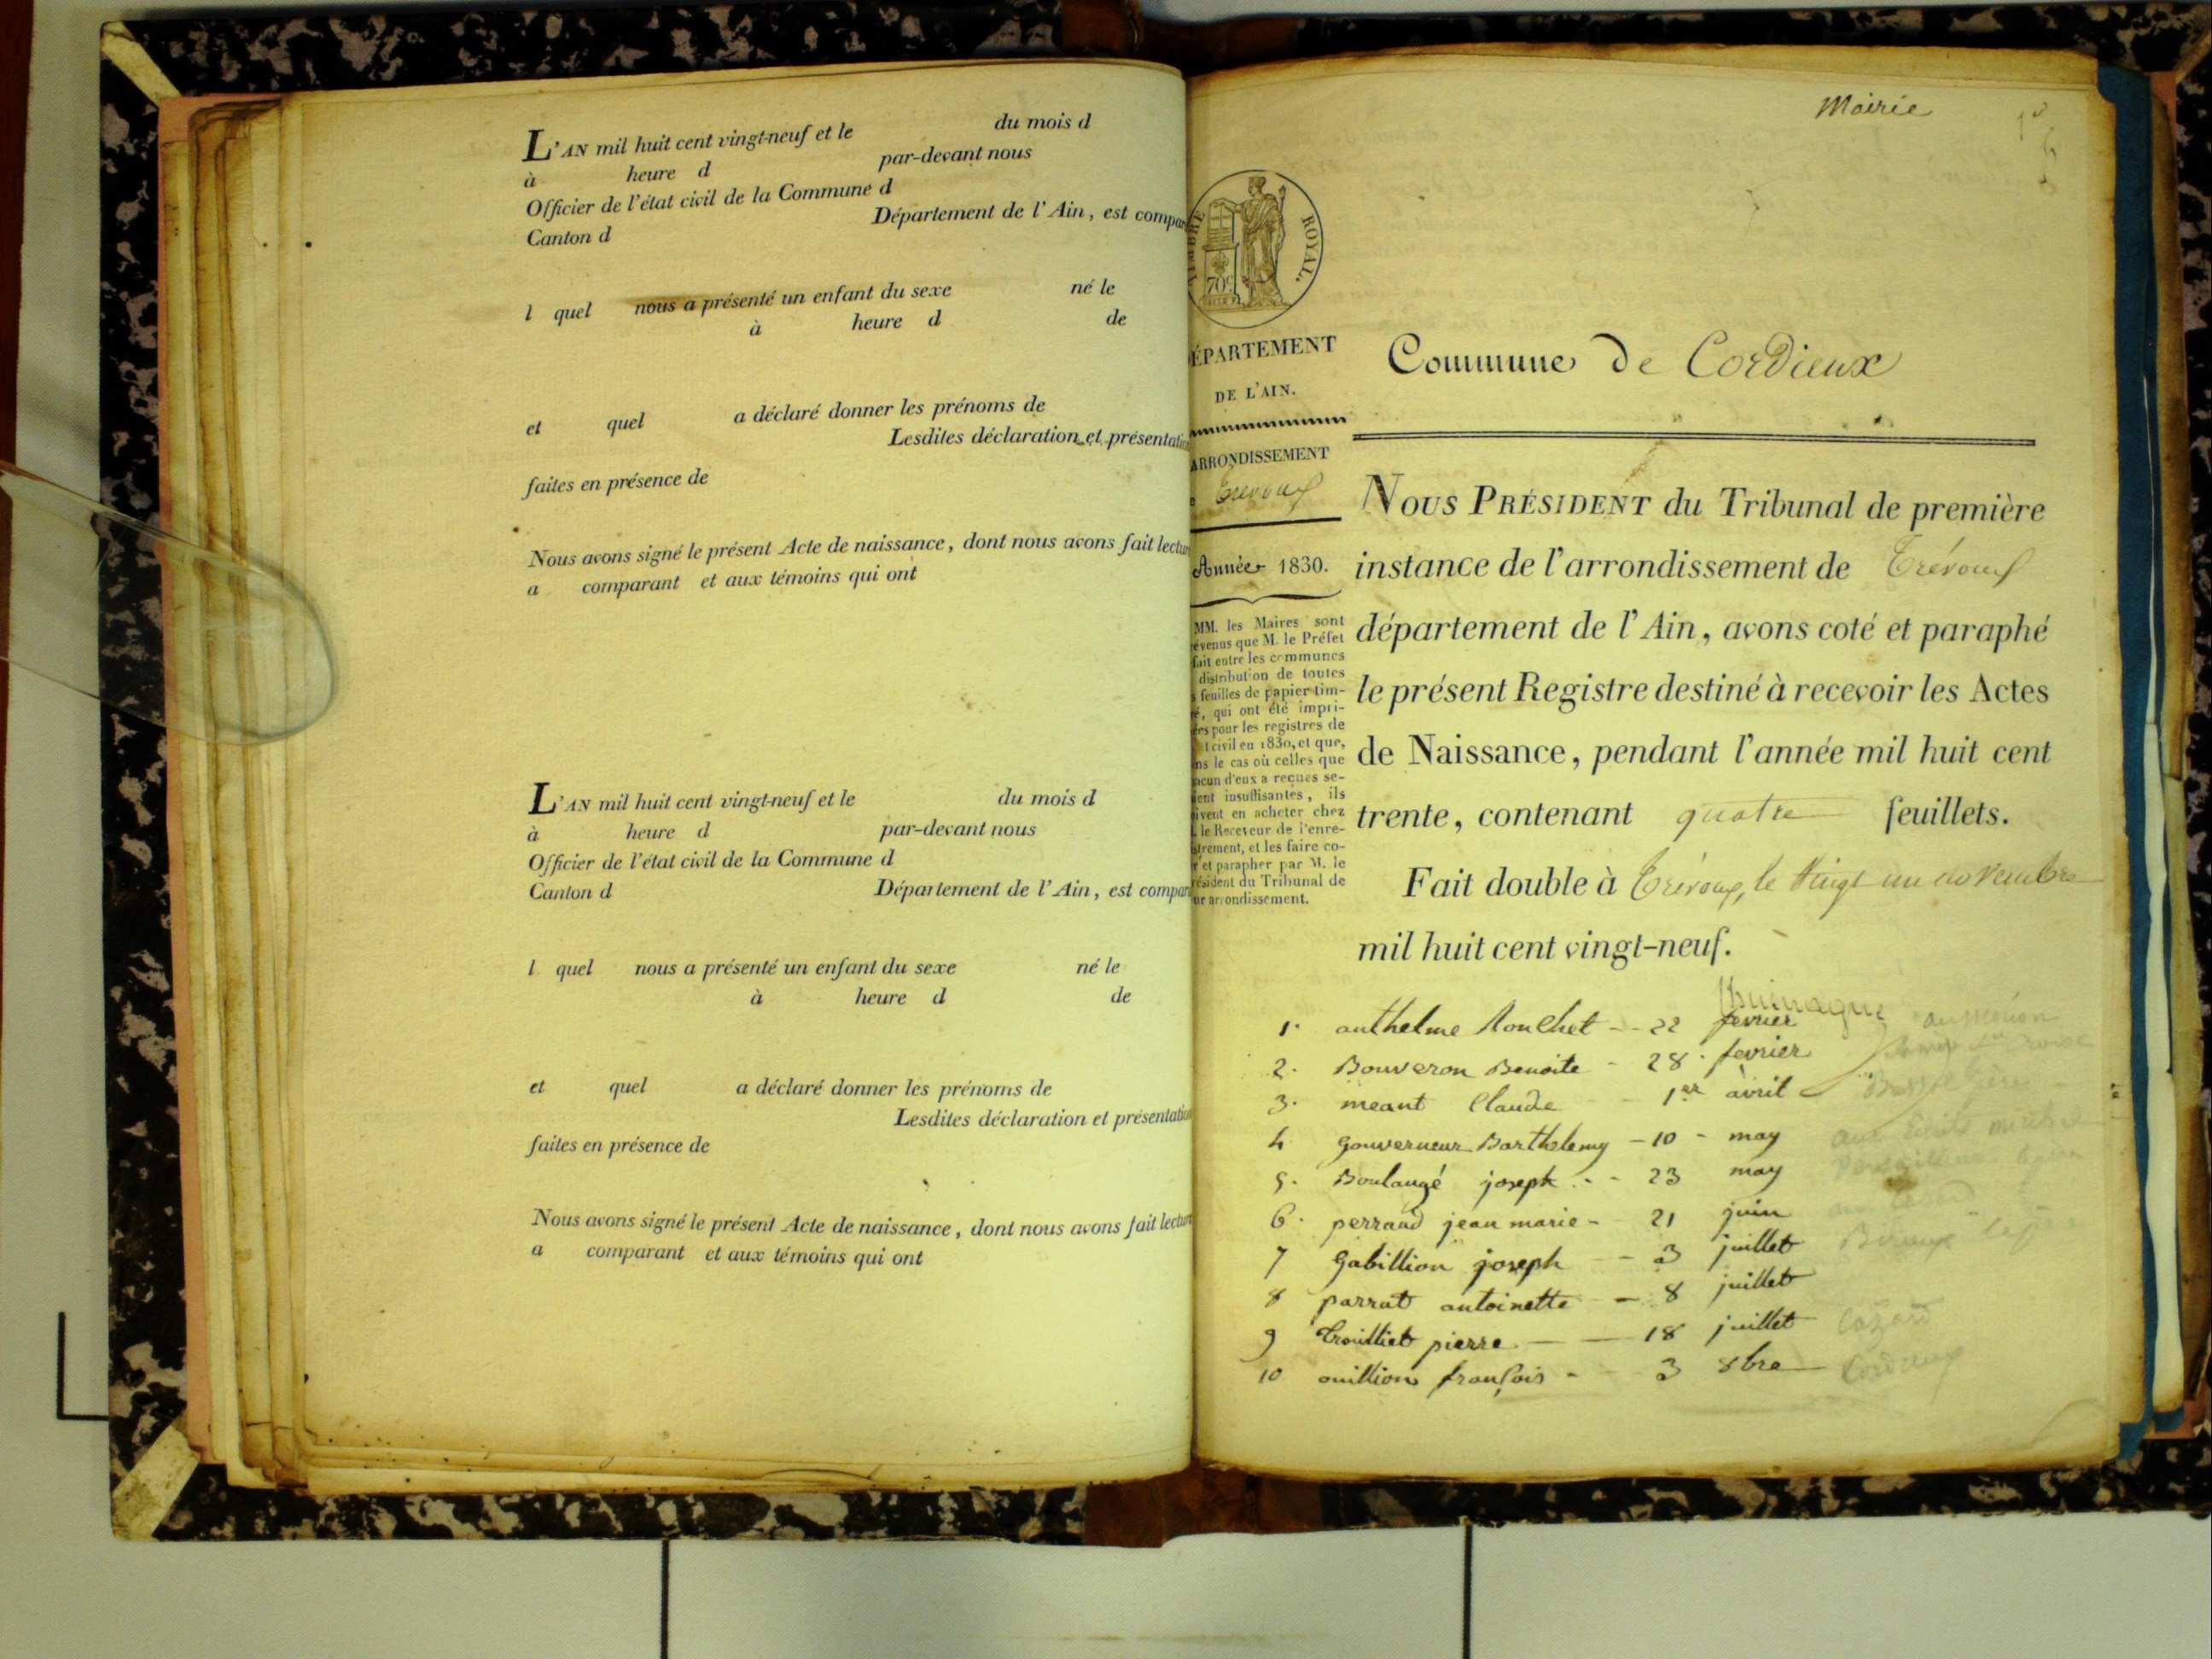 L'AN mil huit cent vingt-neuf et le du mois d
à heure d par-devant nous
Officier de l'état civil de la Commune d
Canton d Département de l'Ain, est compar
l quel nous a présenté un enfant du sexe né le
à heure d de
et quel a déclaré donner les prénoms de
Lesdites déclaration et présentation
faites en présence de
Nous avons signé le présent Acte de naissance, dont nous avons fait lecture
a comparant et aux témoins qui ont
L'AN mil huit cent vingt-neuf et le du mois d
à heure d par-devant nous
Officier de l'état civil de la Commune d
Canton d Département de l'Ain, est compar
l quel nous a présenté un enfant du sexe né le
à heure d de
et quel a déclaré donner les prénoms de
Lesdites déclaration et présentation
faites en présence de
Nous avons signé le présent Acte de naissance, dont nous avons fait lecture
a comparant et aux témoins qui ont
Mairie
TIMBRE ROYAL.
70c
DÉPARTEMENT
DE L'AIN.
ARRONDISSEMENT
Trévoux
Année 1830.
MM. les Maires sont
révenus que M. le Préfet
fait entre les communes
distribution de toutes
s feuilles de papier tim-
ré, qui ont été impri-
ées pour les registres de
t civil en 1830, et que,
ns le cas où celles que
acun d'eux a reçues se-
ient insuffisantes, ils
oivent en acheter chez
. le Receveur de l'enre-
strement, et les faire co-
r et parapher par M. le
résident du Tribunal de
ur arrondissement.
Commune de Cordieux
NOUS PRÉSIDENT du Tribunal de première
instance de l'arrondissement de Trévoux
département de l'Ain, avons coté et paraphé
le présent Registre destiné à recevoir les Actes
de Naissance, pendant l'année mil huit cent
trente, contenant quatre feuillets.
Fait double à Trévoux, le vingt un novembre
mil huit cent vingt-neuf.
1. anthelme Ronchet - - 22 fevrier
2. Bouveron Benoite - 28 . fevrier
3. meant Claude - 1er avril
4 gouverneur Barthelemy - 10 - may
5. Boulangé joseph - - 23 may
6. perraud jean marie - 21 juin
7 Gabillion joseph - 3 juillet
8 parrat antoinette - 8 juillet
9 trouilliet pierre - - 18 juillet
10 ouillion françois - 3 8bre Cordieux